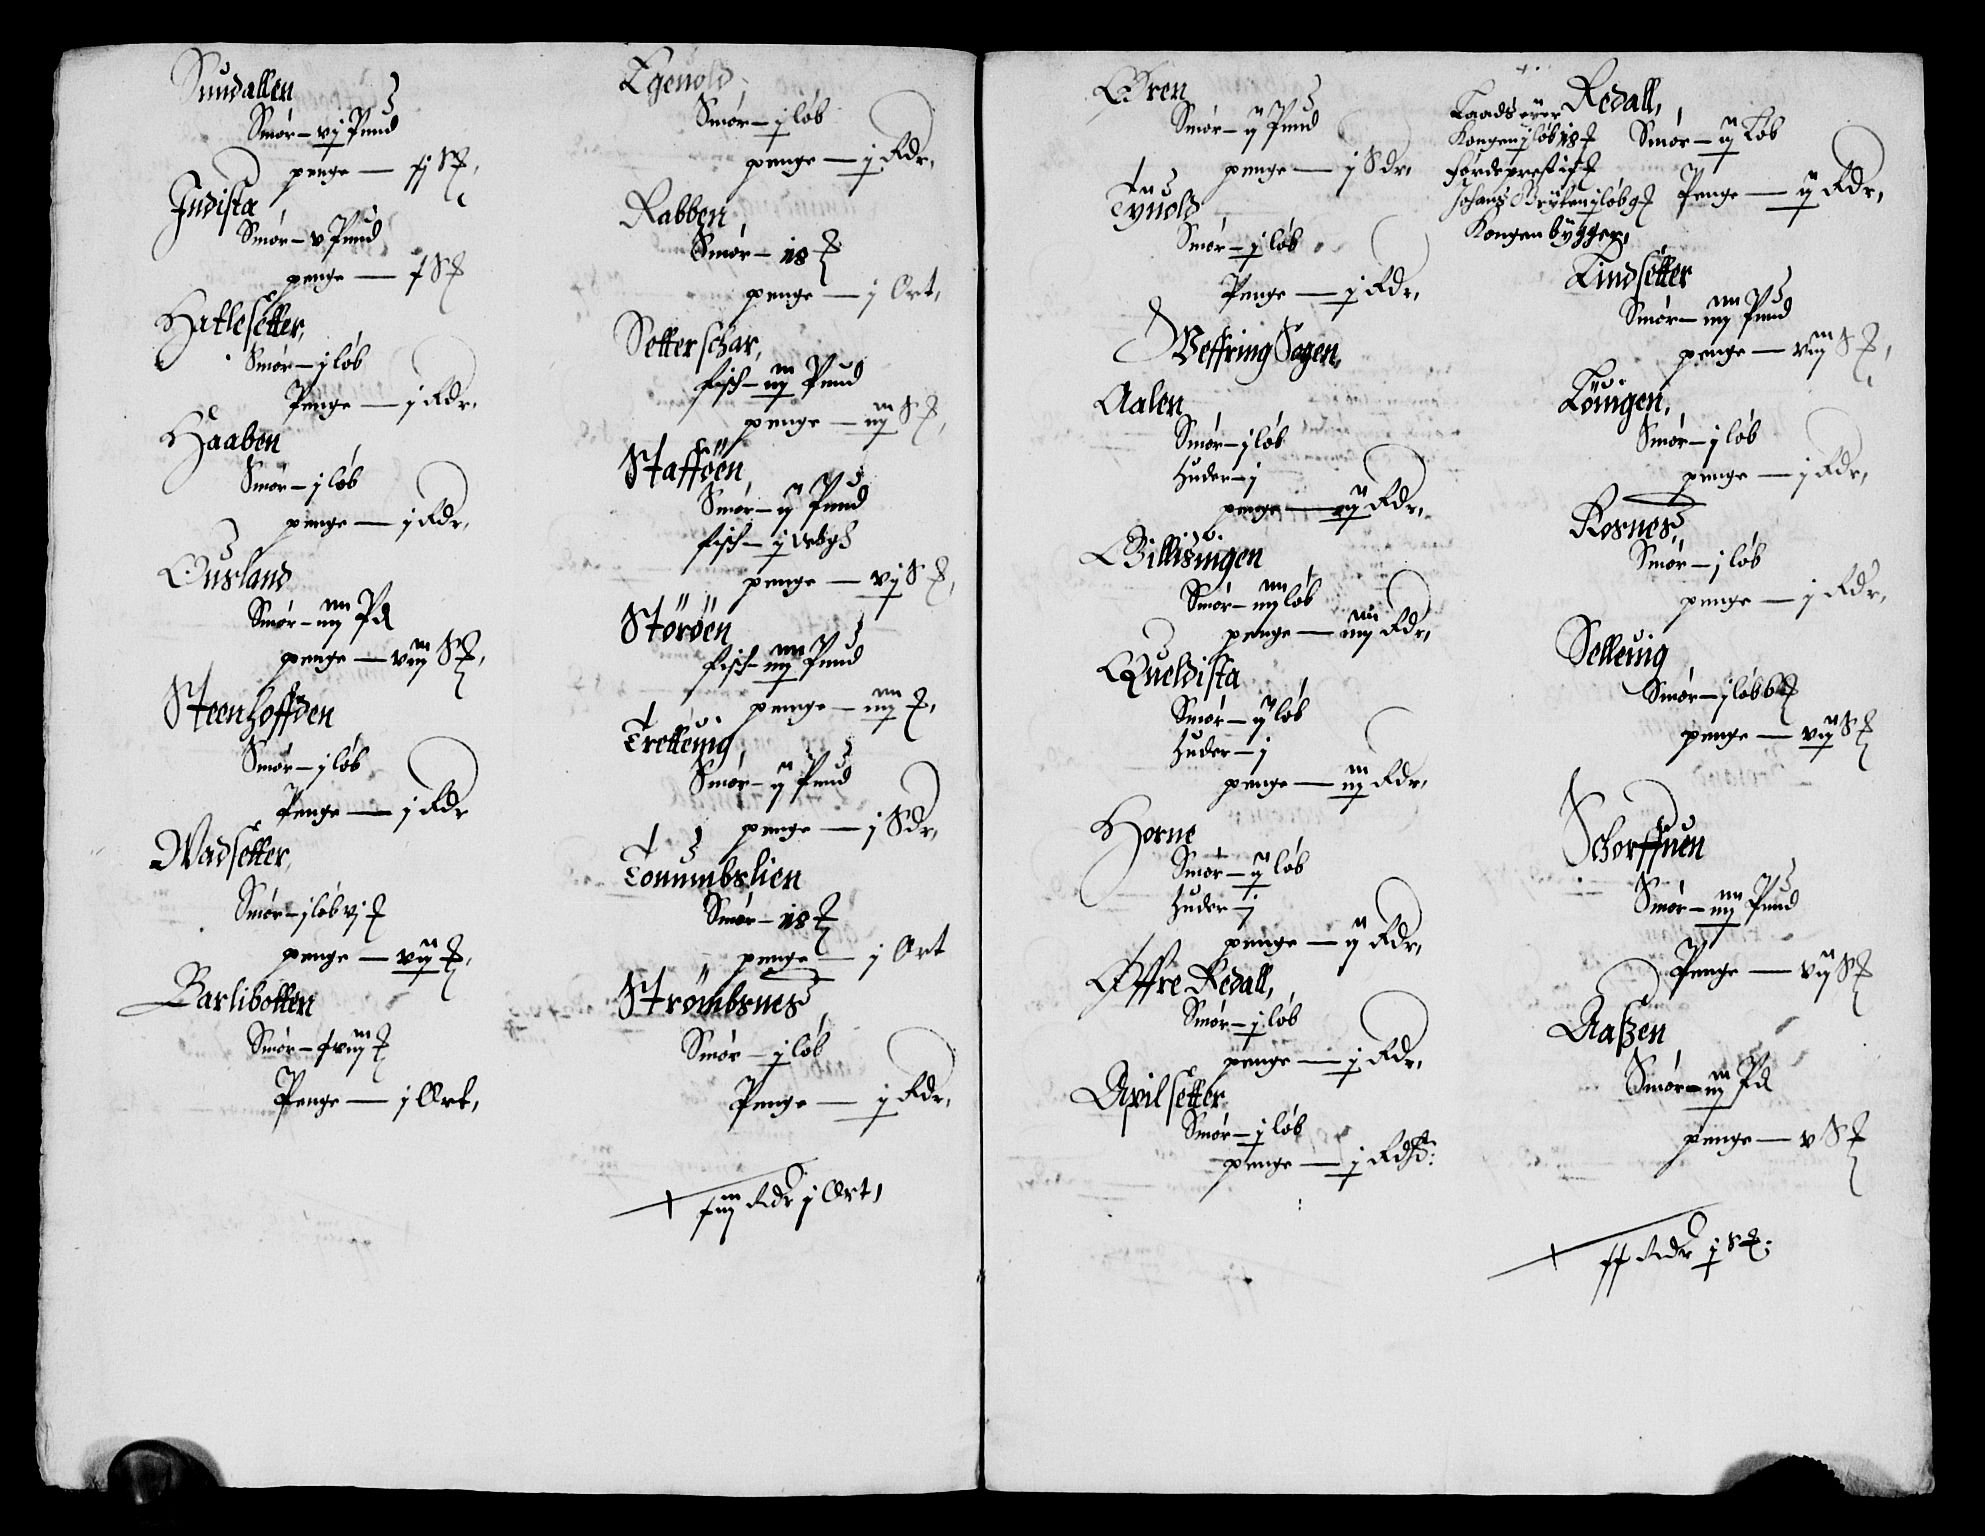 Sundallen
Smør – vj Pund
penge –
Indista
Smør – v Pund
penge –
Hatlesetter,
Smør – j løb
Penge – j Rdr,
Haaben
Smør – j løb
penge – j Rdr,
Ousland
Smør – iiij Pd
penge – viij S β,
Steenhoffden
Smør – j løb
Penge – j Rdr
Wadsetter,
Smør – j løb vj
penge – vij
Barlibotten
Smør –
Penge – j Ort,
Egenold,
Smør – j løb
penge – j Rdr,
Rabben
Smør – 18
penge – j Ort,
Setterschar,
fisch – iij Pund
penge – iij S β,
Stafføen,
Smør – ij Pund
fisch – j
penge – vj S β,
Störöen
fisch – iiij Pund
penge – iiij
Trettenig
Smør – ij Pund
penge – j Sdr,
Tonumbslien
Smør – 18
penge – j Ort
Strömbsnes
Smør – j løb
Penge – j Rdr,
Rdr j Ort,
Øren
Smør – ij Pund
penge – j Sdr,
Tynold
Smør – j løb
Penge – j Rdr,
Weffring Sogen,
Aalen
Smør – j løb
Huder – j
penge – ij Rdr,
Gillisingen
Smør – iiij løb
penge – iiij Rdr,
Queldista
Smør – ij løb
Huder – j
penge – iij Rdr,
Horne
Smør – ij løb
Huder – j
penge – ij Rdr,
Øffre Redall,
Smør – j løb
penge – j Rdr,
Axilsetter
Smør – j løb
penge – j
Redall,
Kongen j løb 18
Smør – ij Løb
Førdeprest
Johans j løb
Penge – ij Rdr,
Kongen bygger,
Lindsetter
Smør – iiij Pund
penge – viij S β,
Löingen,
Smør – j løb
penge – j Rdr,
Rosnes,
Smør – j løb
penge – j Rdr,
Selleinig
Smør – j løb
penge – vij S β
Schorffuen
Smør – iiij Pund
Penge – vij S β
Aaszen
Smør – iij Pd
penge – v S β
Rdr j S β;